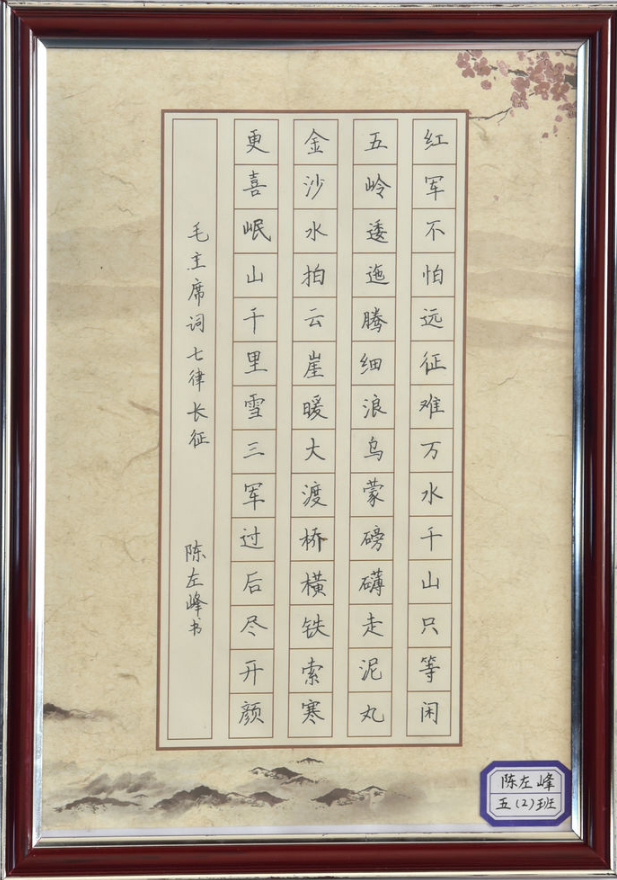 红军不怕远征难万水千山只等闲
五岭逶迤腾细浪乌蒙磅礴走泥丸
金沙水拍云崖暖大渡桥横铁索寒
更喜岷山千里雪三军过后尽开颜
毛主席词七律长征 陈左峰书
陈左峰
五(2)班